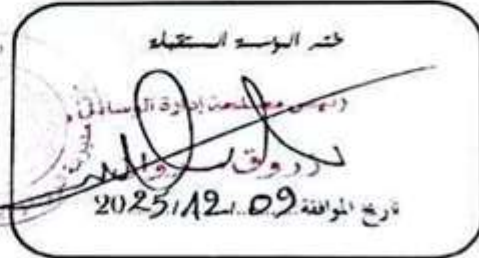 ختم المؤسسة المستقبلة
رئيس مصلحة إدارة الوسائل
تاريخ الموافقة 2025/12/09